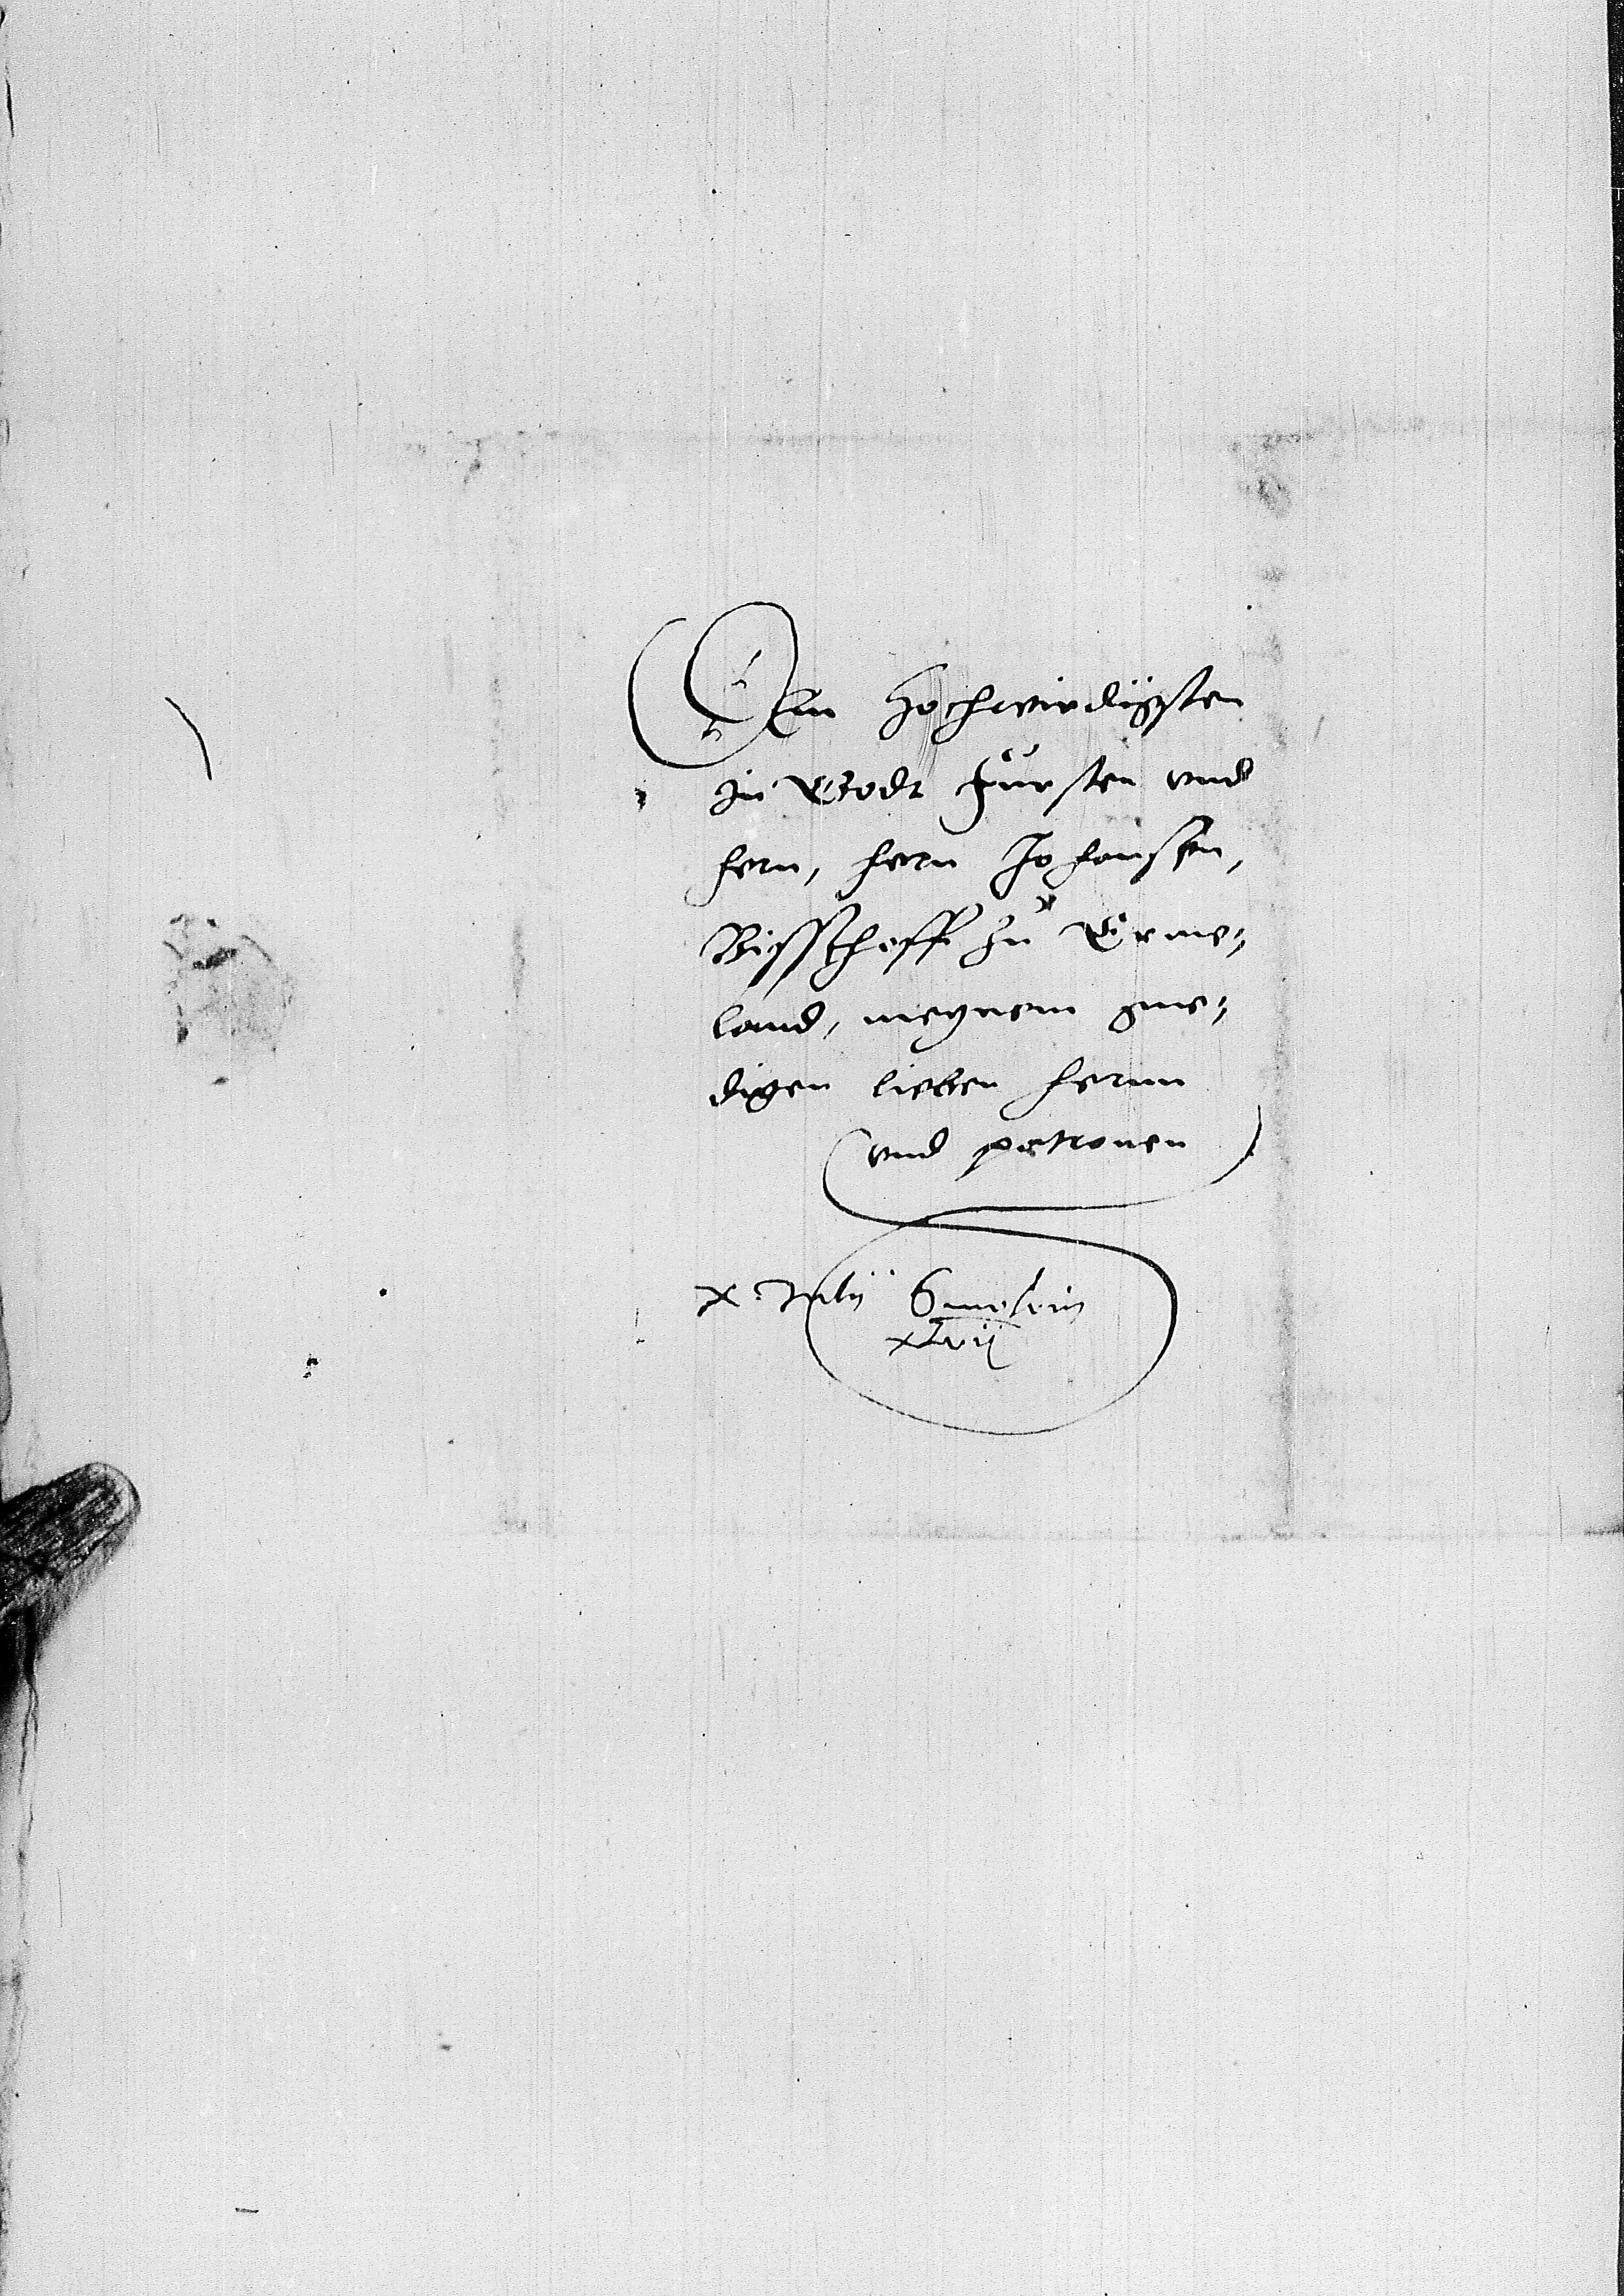 Dem Hochwirdigsten
in Godt Fürsten vnd
hern, hern Johansen,
Bisschoff zu Erme-
land, meynem gne-
digen lieben hernn
vnd patronen
x Julij Smolein
xlvij